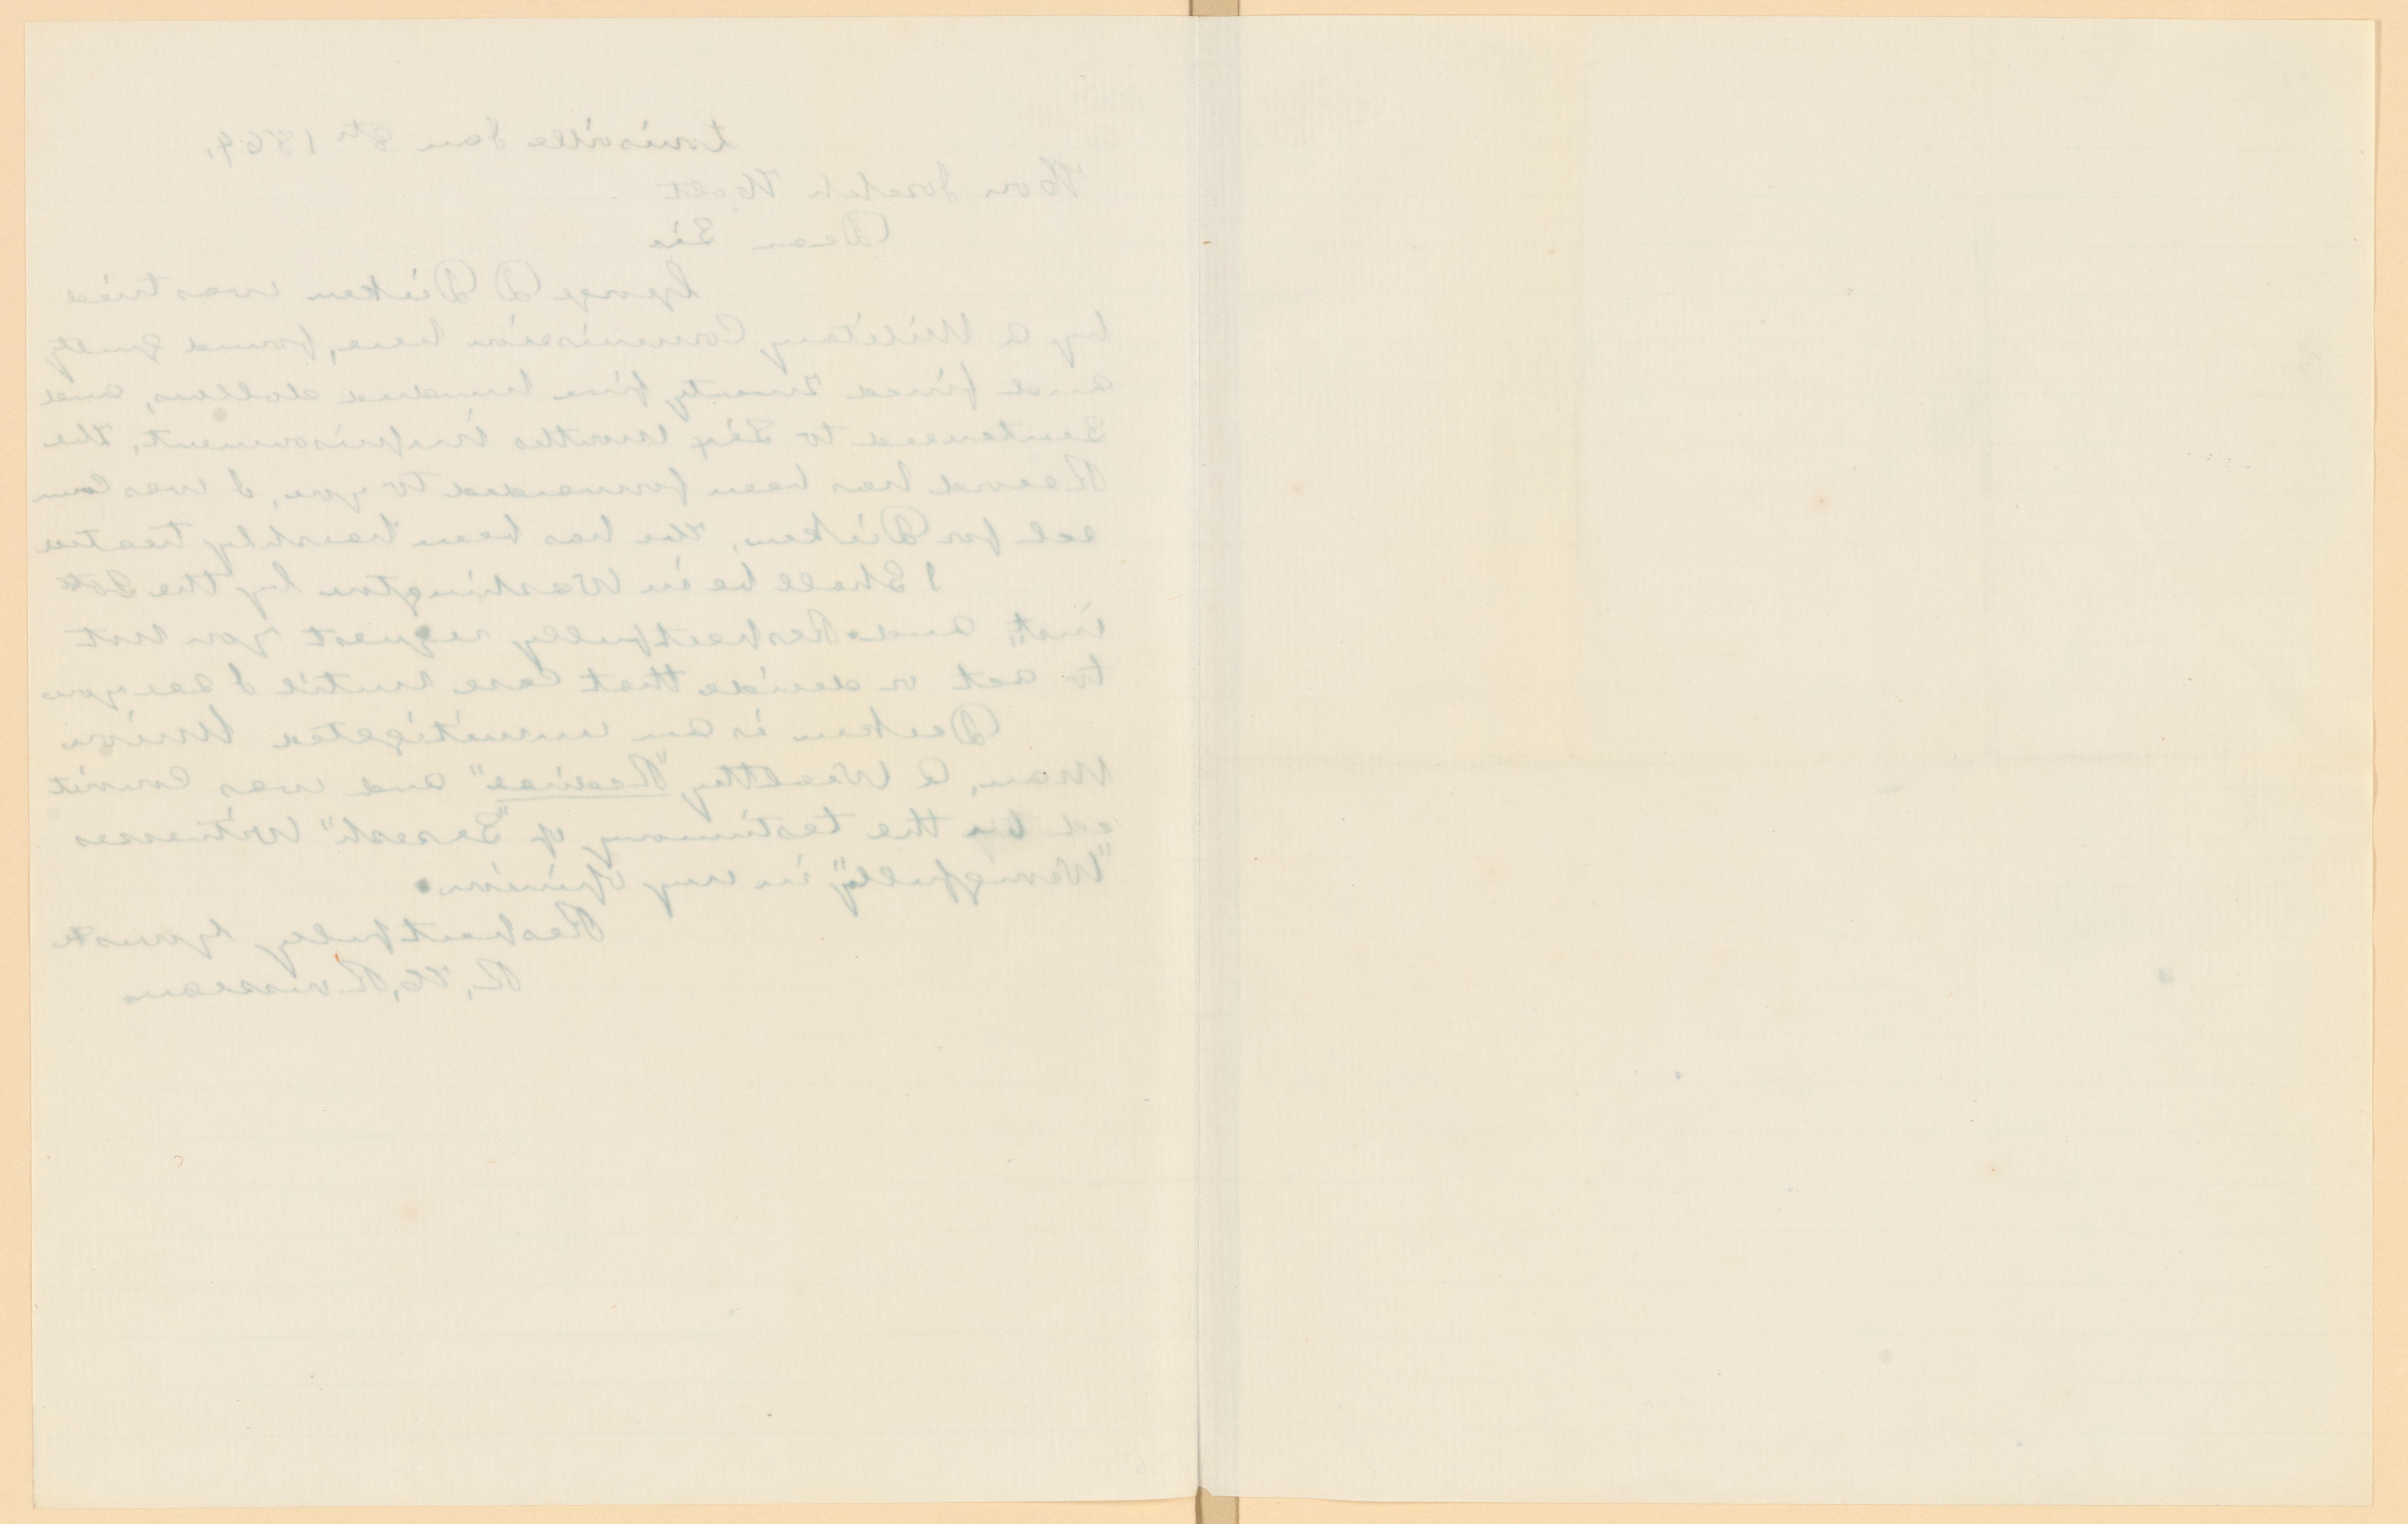 Louisville Jan 8th 1864.
Hon Joseph Holt
Dear Sir
George D Dicken was tried
by a Military Commission here, found guilty
and fined twenty five hundred dollars, and
Sentenced to Six months imprisonment, the
Record has been forwarded to you, I was Coun
sel for Dicken, He has been harshly treated
I Shall be in Washington by the 20th
inst and Respectfully request you not
to act or decide that case until I see you
Dicken is an unmitigated Union
Man, a Wealthy "Radical" and was Convict
ed by the testimony of "Secesh" Witnesses
"Wrongfully" in my Opinion.
Respectfully Yours &c
R. H. Rousseau